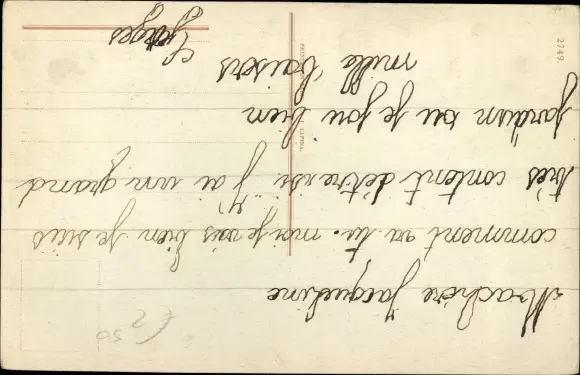 Machère Jacqueline
comment va tu. moi je vais bien je suis
très content y'a un grand
jardin ou je jou bien
mille baisers
Georges
2749.
€ 2 50